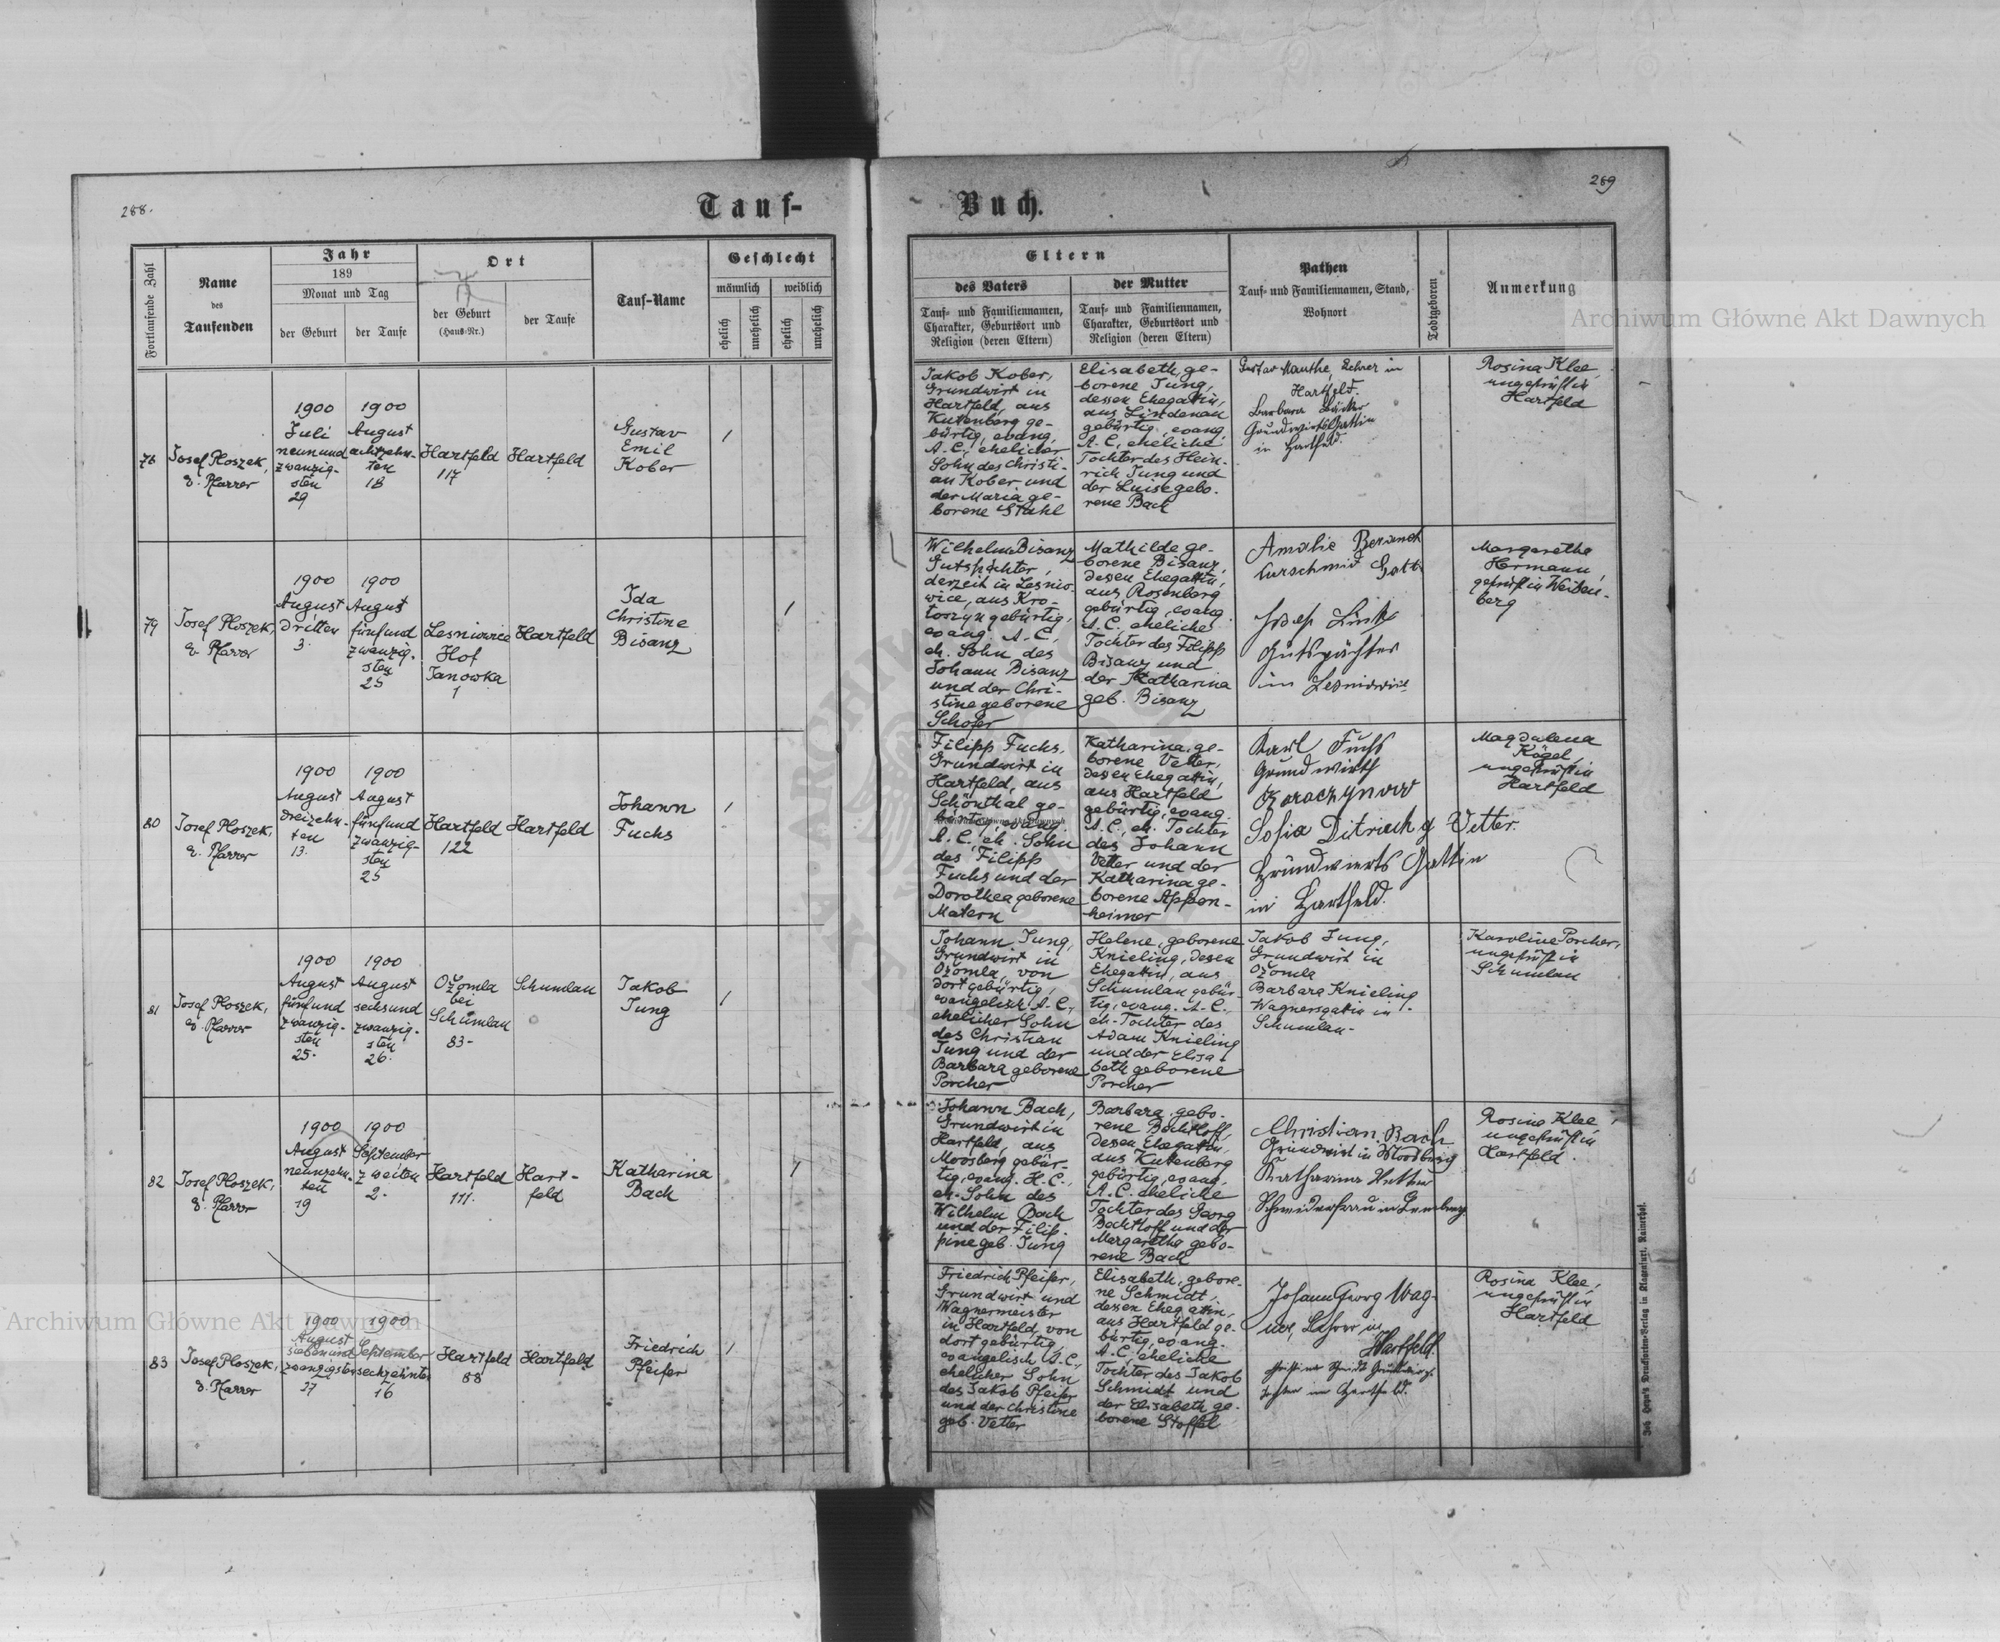 288.
Tauf-
Buch.
289
Fortlaufende Zahl
Name
des
Taufenden
Jahr
189
Monat und Tag
der Geburt
der Taufe
Ort
der Geburt
(Haus-Nr.)
der Taufe
Tauf-Name
Geschlecht
männlich
weiblich
ehelich
unehelich
ehelich
unehelich
Eltern
des Vaters
Tauf- und Familiennamen,
Charakter, Geburtsort und
Religion (deren Eltern)
der Mutter
Tauf- und Familiennamen,
Charakter, Geburtsort und
Religion (deren Eltern)
Pathen
Tauf- und Familiennamen, Stand,
Wohnort
Todtgeboren
Anmerkung
78
Josef Ploszek,
e. Pfarrer
1900
Juli
neunund
zwanzig-
sten
29
1900
August
achtzehn-
ten
18
Hartfeld
117
Hartfeld
Gustav
Emil
Kober
1
Jakob Kober,
Grundwirt in
Hartfeld, aus
Kutenberg ge-
bürtig, evang.
A. C., ehelicher
Sohn des Christi-
an Kober und
der Maria ge-
borene Stahl
Elisabeth, ge-
borene Jung,
dessen Ehegattin,
aus Lindenau
gebürtig, evang.
A. C., eheliche
Tochter des Hein-
rich Jung und
der Luise gebo-
rene Bach
Gustav Manthe, Lehrer in
Hartfeld.
Barbara Bäcker
Grundwirts Gattin
in Hartfeld
Rosina Klee,
ungeprüft in
Hartfeld
79
Josef Ploszek,
e. Pfarrer
1900
August
dritten
3.
1900
August
fünfund
zwanzig-
sten
25
Lesniowice
Hof
Janowka
1
Hartfeld
Ida
Christine
Bisanz
1
Wilhelm Bisanz
Gutspächter,
derzeit in Lesnio-
wice, aus Kro-
toszyn gebürtig,
evang. A. C.,
eh. Sohn des
Johann Bisanz
und der Chri-
stine geborene
Schofer
Mathilde ge-
borene Bisanz,
dessen Ehegattin,
aus Rosenberg
gebürtig, evang.
A. C. eheliche
Tochter des Filipp
Bisanz und
der Katharina
geb. Bisanz
Amalie
Josef Linke
Gutspächter
in Lesniowice
Margarethe
Hermann,
geprüft in Weißen-
berg
80
Josef Ploszek,
e. Pfarrer
1900
August
dreizehn-
ten
13.
1900
August
fünfund
zwanzig-
sten
25
Hartfeld
122
Hartfeld
Johann
Fuchs
1
Filipp Fuchs,
Grundwirt in
Hartfeld, aus
Schönthal ge-
bürtig, evang.
A. C., eh. Sohn
des Filipp
Fuchs und der
Dorothea geborene
Matern
Katharina, ge-
borene Vetter,
dessen Ehegattin,
aus Hartfeld
gebürtig, evang.
A. C., eh. Tochter
des Johann
Vetter und der
Katharina ge-
borene Appen-
heimer
Karl Fuchs
Grundwirth
Sofia Ditrich g Vetter.
Gründwierts Gattin
in Hartfeld.
Magdalena
Kögel,
ungeprüft in
Hartfeld
81
Josef Ploszek,
e. Pfarrer
1900
August
fünfund
zwanzig-
sten
25.
1900
August
sechsund
zwanzig-
sten
26.
Ožomla
bei
Schumlau
83-
Schumlau
Jakob
Jung
1
Johann Jung,
Grundwirt in
Ožomla, von
dort gebürtig,
evangelisch A. C.,
ehelicher Sohn
des Christian
Jung und der
Barbara geborene
Porcher
Helene, geborene
Knieling, dessen
Ehegattin, aus
Schumlau gebür-
tig, evang. A. C.,
eh. Tochter des
Adam Knieling
und der Elisa-
beth geborene
Porcher
Jakob Jung,
Grundwirt in
Ožomla
Barbara Knieling
Wagnersgattin in
Schumlau-
Karoline Porcher,
ungeprüft in
Schumlau
82
Josef Ploszek,
e. Pfarrer
1900
August
neunzehn-
ten
19
1900
September
zweiten
2.
Hartfeld
111.
Hart-
feld
Katharina
Bach
1
Johann Bach,
Grundwirt in
Hartfeld, aus
Moosberg gebür-
tig, evang. H. C.,
eh. Sohn des
Wilhelm Bach
und der Filip-
pine geb. Jung
Barbara, gebo-
rene Bechtloff,
dessen Ehegattin,
aus Kutenberg
gebürtig, evang.
A. C. eheliche
Tochter des Georg
Bechtloff und der
Margaretha gebo-
rene Bach
Christian Bach
Grundwirt in Moosberg
Katharina
Schneidersfrau in Lemberg
Rosina Klee,
ungeprüft in
Hartfeld.
83
Josef Ploszek,
e. Pfarrer
1900
August
siebenund
zwanzigsten
27
1900
September
sechzehnten
16
Hartfeld
88
Hartfeld
Friedrich
Pfeifer
1
Friedrich Pfeifer,
Grundwirt und
Wagnermeister
in Hartfeld, von
dort gebürtig,
evangelisch A. C.,
ehelicher Sohn
des Jakob Pfeifer
und der Christine
geb. Vetter
Elisabeth, gebore-
ne Schmidt,
dessen Ehegattin,
aus Hartfeld ge-
bürtig, evang.
A. C., eheliche
Tochter des Jakob
Schmidt und
der Elisabeth ge-
borene Stoffel
Johann Georg Wag-
ner, Lehrer in
Hartfeld.
Rosina Klee,
ungeprüft in
Hartfeld
Joh. Heyn's Drucksorten-Verlag in Klagenfurt, Rainerhof.
Archiwum Główne Akt Dawnych
Archiwum Główne Akt Dawnych